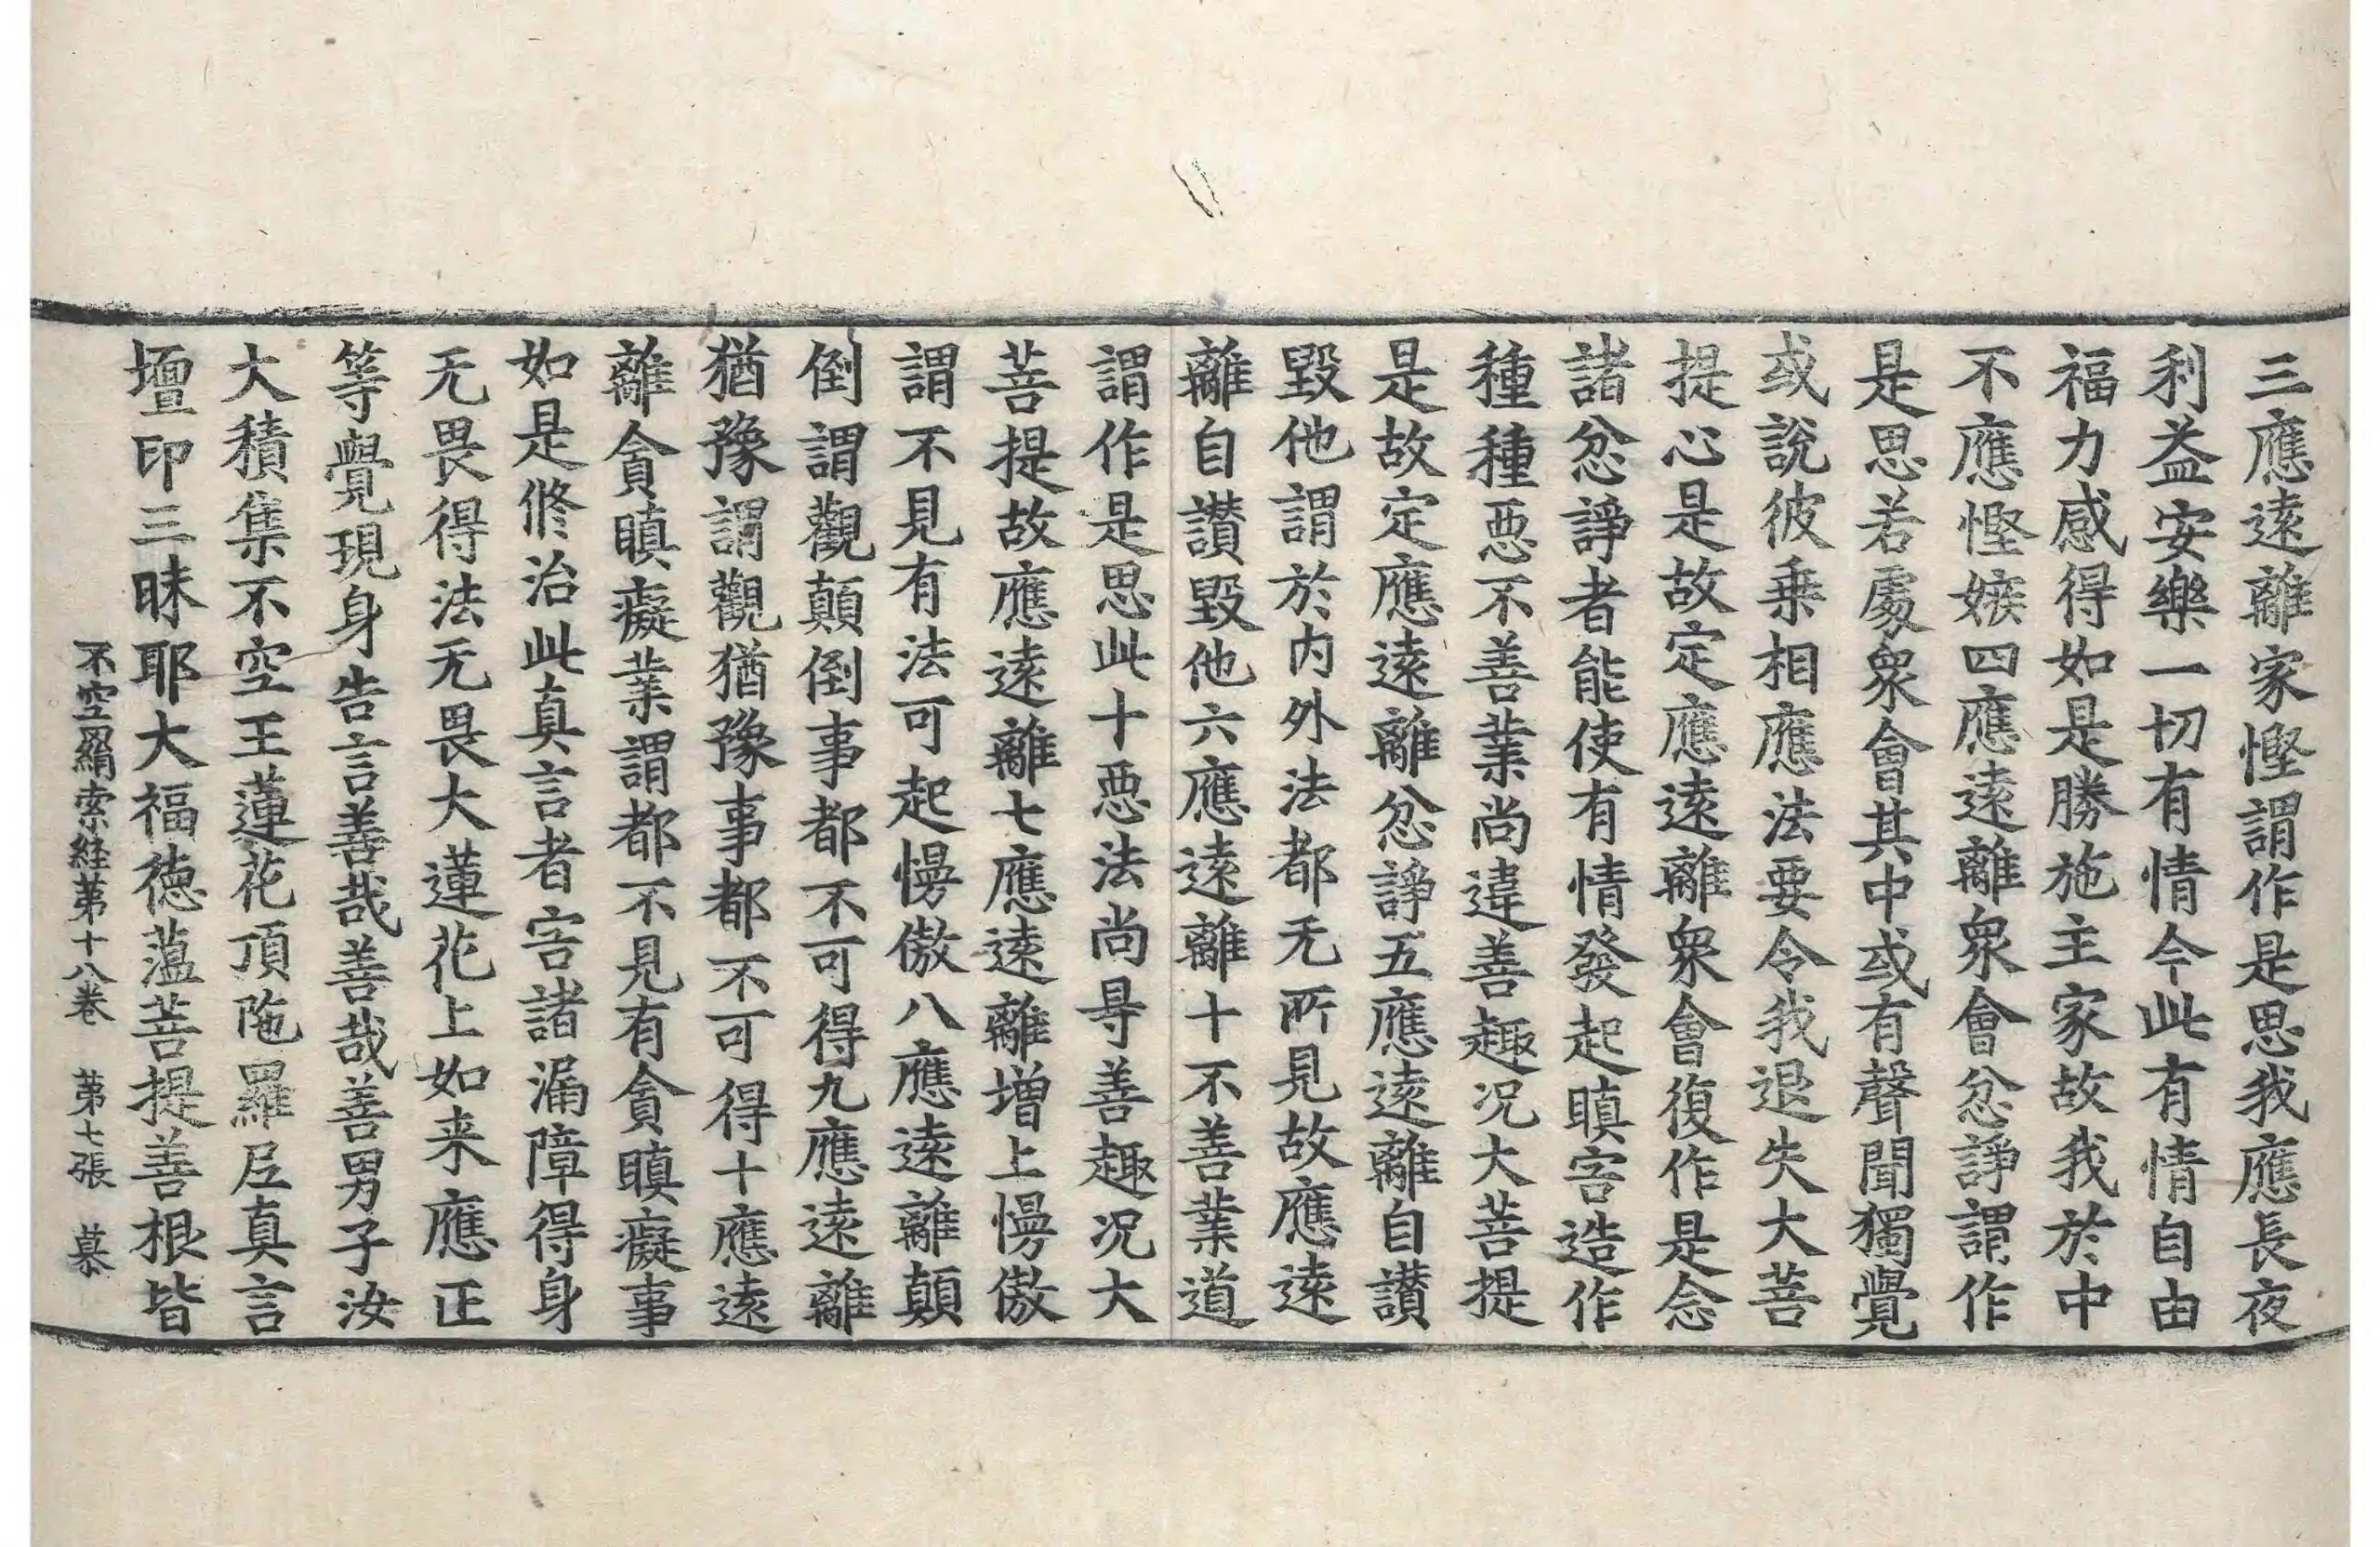 三應遠離家慳謂作是思我應長夜
利益安樂一切有情今此有情自由
福力感得如是勝施主家故我於中
不應慳嫉四應遠離衆會忿諍謂作
是思若處衆會其中或有聲聞獨覺
或說彼乗相應法要令我退失大菩
提心是故定應遠離衆會復作是念
諸忿諍者能使有情發起瞋害造作
種種惡不善業尚違善趣况大菩提
是故定應遠離忿諍五應遠離自讃
毀他謂於内外法都无所見故應遠
離自讃毀他六應遠離十不善業道
謂作是思此十惡法尚㝵善趣况大
菩提故應遠離七應遠離增上慢傲
謂不見有法可起慢傲八應遠離顛
倒謂觀顛倒事都不可得九應遠離
猶豫謂觀猶豫事都不可得十應遠
離貪瞋癡業謂都不見有貪瞋癡事
如是修治此真言者害諸漏障得身
无畏得法无畏大蓮花上如来應正
等覺現身告言善哉善哉善男子汝
大積集不空王蓮花頂陁羅尼真言
壇印三昧耶大福德蘊菩提善根皆
不空羂索経第十八卷　第七張　慕